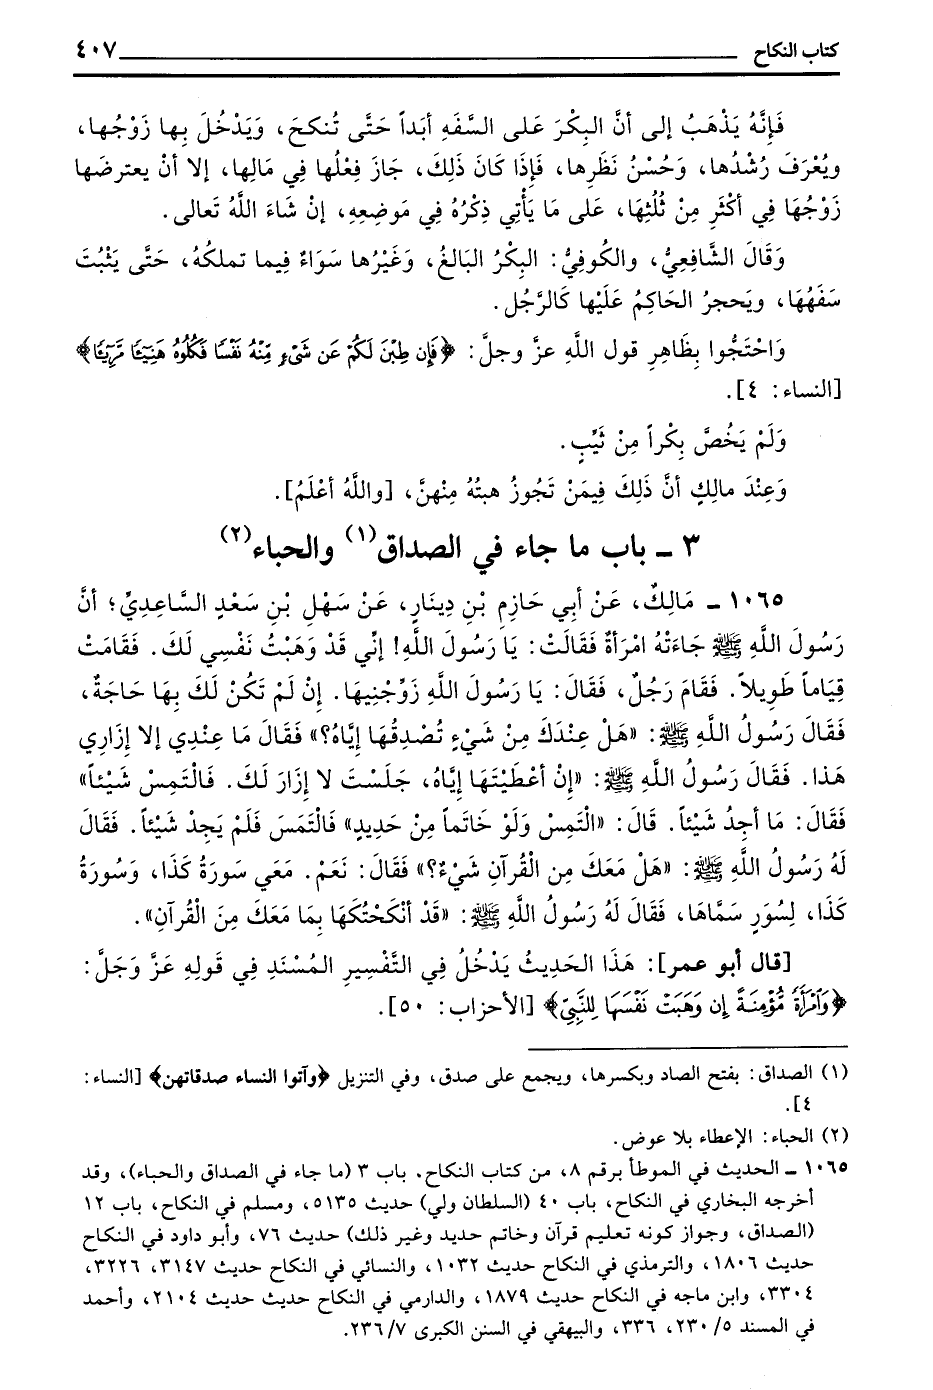 كتاب النكاح ٤٠٧
فَإِنَّهُ يَذْهَبُ إلى أنَّ البِكْرَ عَلى السَّفَهِ أبَداً حَتَّى تُنكحَ، وَيَدْخُلَ بِها زَوْجُها،
ويُعْرَفَ رُشْدُها، وَحُسْنُ نَظَرِها، فَإِذَا كَانَ ذَلِكَ، جَازَ فِعْلُها فِي مَالِها، إلا أنْ يعترضَها
زَوْجُهَا فِي أكْثَرِ مِنْ ثُلُثِهَا، عَلى مَا يَأْتِي ذِكْرُهُ فِي مَوضِعِهِ، إنْ شَاءَ اللَّهُ تَعالى.
وَقَالَ الشَّافِعِيُّ، والكُوفِيُّ: البِكْرُ البَالغُ، وَغَيْرُها سَوَاءٌ فِيما تملكُهُ، حَتَّى يَثْبُتَ
سَفَهُهَا، ويَحجرُ الحَاكِمُ عَلَيْها كَالرَّجُل.
وَاحْتَجُّوا بِظَاهِرِ قول اللَّهِ عزَّ وجلَّ: ﴿فَإِن طِبْنَ لَكُمْ عَن شَىْءٍ مِّنْهُ نَفْسًا فَكُلُوهُ هَنِيٓـًٔا مَّرِيٓـًٔا﴾
[النساء: ٤].
وَلَمْ يَخُصَّ بِكْراً مِنْ ثَيِّبٍ.
وَعِنْدَ مالِكٍ أنَّ ذَلِكَ فِيمَنْ تَجُوزُ هبتُهُ مِنْهنَّ، [واللَّهُ أعْلَمُ].
٣ ـ باب ما جاء في الصداق(١) والحباء(٢)
١٠٦٥ ـ مَالِكٌ، عَنْ أبِي حَازِمِ بْنِ دِينَارٍ، عَنْ سَهْلِ بْنِ سَعْدٍ السَّاعِدِيِّ؛ أنَّ
رَسُولَ اللَّهِ ﷺ جَاءَتْهُ امْرَأةٌ فَقَالَتْ: يَا رَسُولَ اللَّهِ! إنِّي قَدْ وَهَبْتُ نَفْسِي لَكَ. فَقَامَتْ
قِيَاماً طَوِيلاً. فَقَامَ رَجُلٌ، فَقَالَ: يَا رَسُولَ اللَّهِ زَوِّجْنِيهَا. إنْ لَمْ تَكُنْ لَكَ بِهَا حَاجَةٌ،
فَقَالَ رَسُولُ اللَّهِ ﷺ: «هَلْ عِنْدَكَ مِنْ شَيْءٍ تُصْدِقُهَا إيَّاهُ؟» فَقَالَ مَا عِنْدِي إلا إزَارِي
هَذا. فَقَالَ رَسُولُ اللَّهِ ﷺ: «إنْ أعْطَيْتَهَا إيَّاهُ، جَلَسْتَ لا إزَارَ لَكَ. فَالْتَمِسْ شَيْئاً»
فَقَالَ: مَا أجِدُ شَيْئاً. قَالَ: «الْتَمِسْ وَلَوْ خَاتَماً مِنْ حَدِيدٍ» فَالْتَمَسَ فَلَمْ يَجِدْ شَيْئاً. فَقَالَ
لَهُ رَسُولُ اللَّهِ ﷺ: «هَلْ مَعَكَ مِن الْقُرآنِ شَيْءٌ؟» فَقَالَ: نَعَمْ. مَعَي سَورَةُ كَذَا، وَسُورَةُ
كَذَا، لِسُوَرٍ سَمَّاهَا، فَقَالَ لَهُ رَسُولُ اللَّهِ ﷺ: «قَدْ أنْكَحْتُكَهَا بِمَا مَعَكَ مِنَ الْقُرآنِ».
[قال أبو عمر]: هَذَا الحَدِيثُ يَدْخُلُ فِي التَّفْسِيرِ المُسْنَدِ فِي قَولِهِ عَزَّ وَجَلَّ:
﴿وَٱمْرَأَةً مُّؤْمِنَةً إِن وَهَبَتْ نَفْسَهَا لِلنَّبِيِّ﴾ [الأحزاب: ٥٠].
(١) الصداق: بفتح الصاد وبكسرها، ويجمع على صدق، وفي التنزيل ﴿وآتوا النساء صدقاتهن﴾ [النساء:
٤].
(٢) الحباء: الإعطاء بلا عوض.
١٠٦٥ ـ الحديث في الموطأ برقم ٨، من كتاب النكاح. باب ٣ (ما جاء في الصداق والحباء)، وقد
أخرجه البخاري في النكاح، باب ٤٠ (السلطان ولي) حديث ٥١٣٥، ومسلم في النكاح، باب ١٢
(الصداق، وجواز كونه تعليم قرآن وخاتم حديد وغير ذلك) حديث ٧٦، وأبو داود في النكاح
حديث ١٨٠٦، والترمذي في النكاح حديث ١٠٣٢، والنسائي في النكاح حديث ٣١٤٧، ٣٢٢٦،
٣٣٠٤، وابن ماجه في النكاح حديث ١٨٧٩، والدارمي في النكاح حديث حديث ٢١٠٤، وأحمد
في المسند ٥/ ٢٣٠، ٣٣٦، والبيهقي في السنن الكبرى ٧/ ٢٣٦.